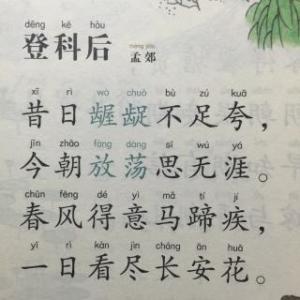 dēng kē hòu
登科后 mèng jiāo
孟郊
xī rì wò chuò bù zú kuā
昔日龌龊不足夸，
jīn zhāo fàng dàng sī wú yá
今朝放荡思无涯。
chūn fēng dé yì mǎ tí jí
春风得意马蹄疾，
yí rì kàn jìn cháng ān huā
一日看尽长安花。